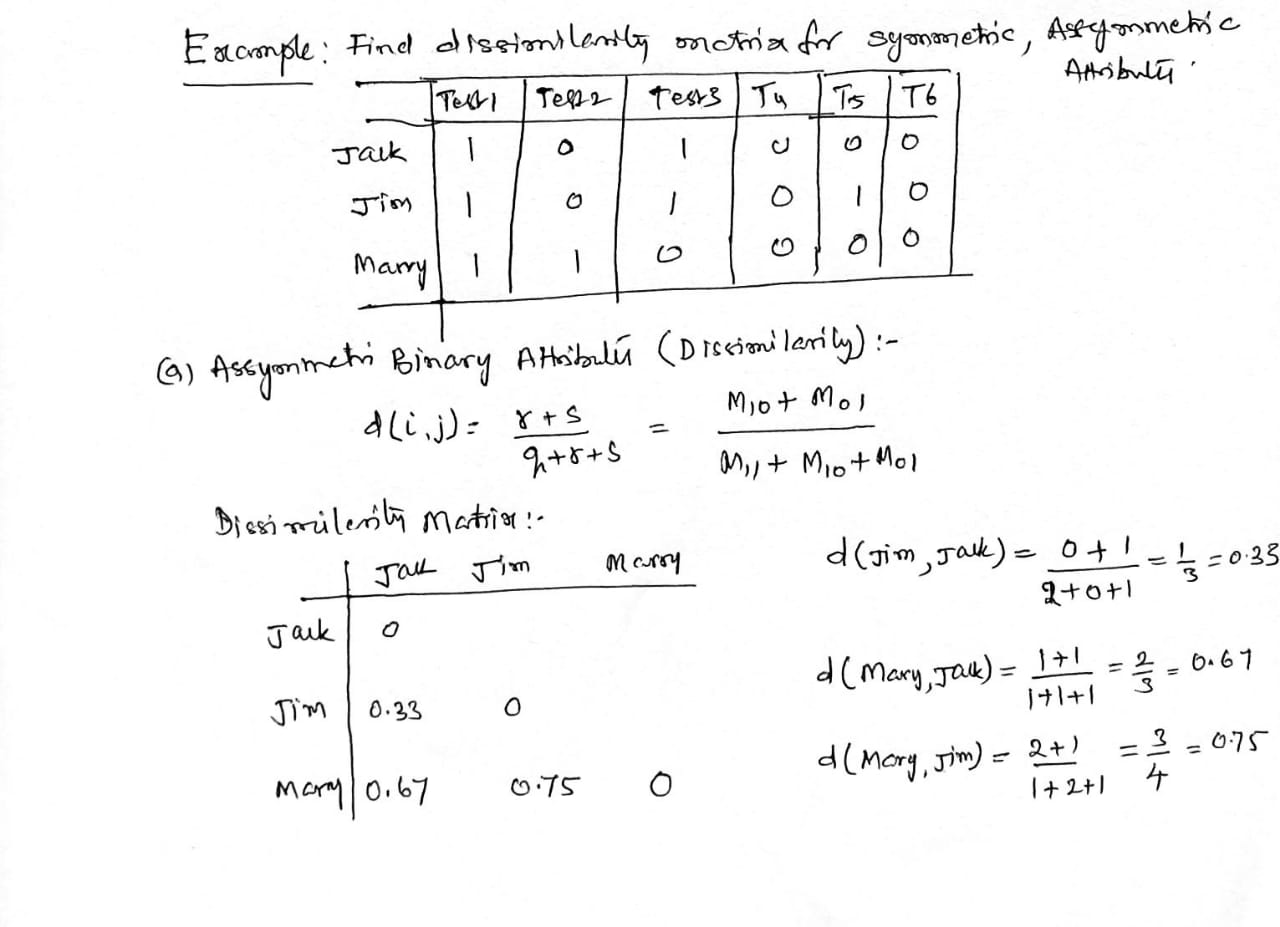 Example: Find dissimilarity matrix for symmetric, Assymmetric
Attribute.
Test1 Test2 Test3 T4 T5 T6
Jack 1 0 1 0 0 0
Jim 1 0 1 0 1 0
Marry 1 1 0 0 0 0
(a) Assymmetri Binary Attribute (Dissimilarity) :-
d(i,j) = r+s / q+r+s = M10 + M01 / M11 + M10 + M01
Dissimilarity Matrix :-
Jack Jim Marry
Jack 0
Jim 0.33 0
Mary 0.67 0.75 0
d(Jim, Jack) = 0+1 / 2+0+1 = 1/3 = 0.33
d(Mary, Jack) = 1+1 / 1+1+1 = 2/3 = 0.67
d(Mary, Jim) = 2+1 / 1+2+1 = 3/4 = 0.75